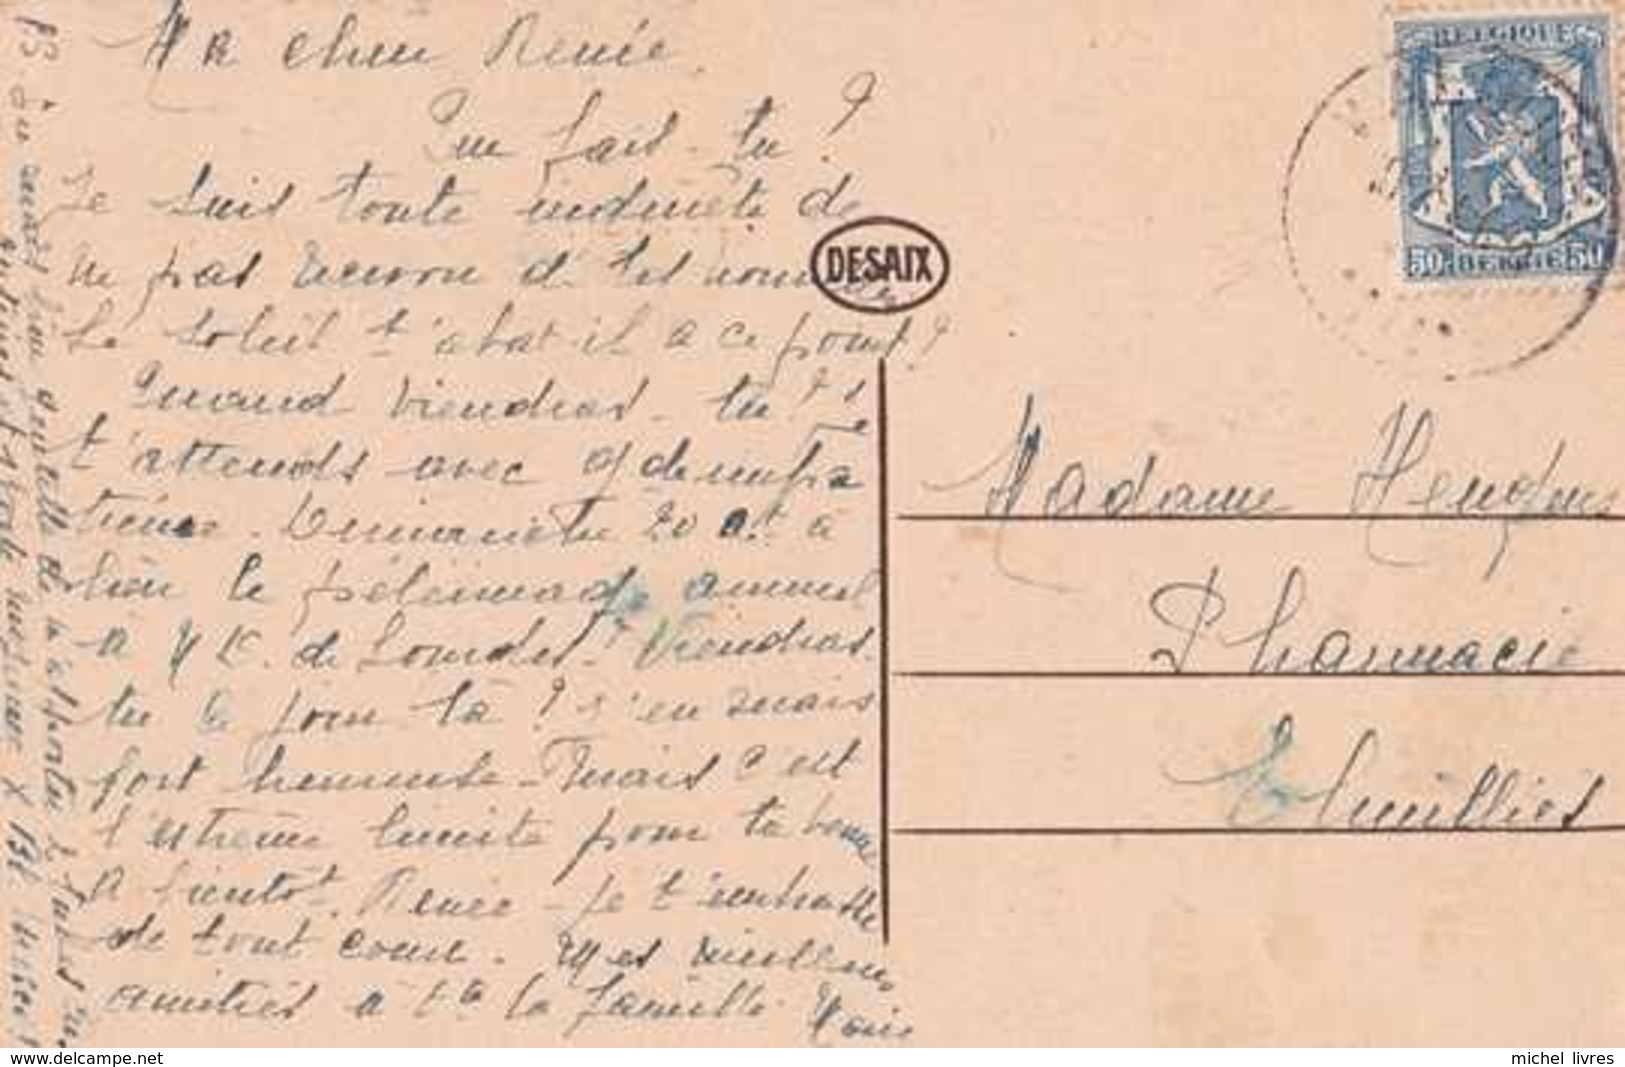 Ma chère Renée
Que fais-tu ?
Je suis toute inquiète de
ne pas recevoir d
Le soleil t'abat-il a ce point ?
Quand viendras-tu ? Je
t'attends avec gde impa
tience. Dimanche 20 a
lieu le pélerinage annuel
à N D. de Lourdes. Viendras
tu ce jour là ? J'en serais
fort heureuse - mais c'est
l'extrême limite pour ta venue
A bientôt Renée - Je t'embrasse
de tout coeur. Mes meilleures
amitiés à tte la famille. Marie
PS.
DESAIX
BELGIQUE
50 BELGIE 50
Madame
Pharmacie
Thuillies
www.delcampe.net
michel_livres